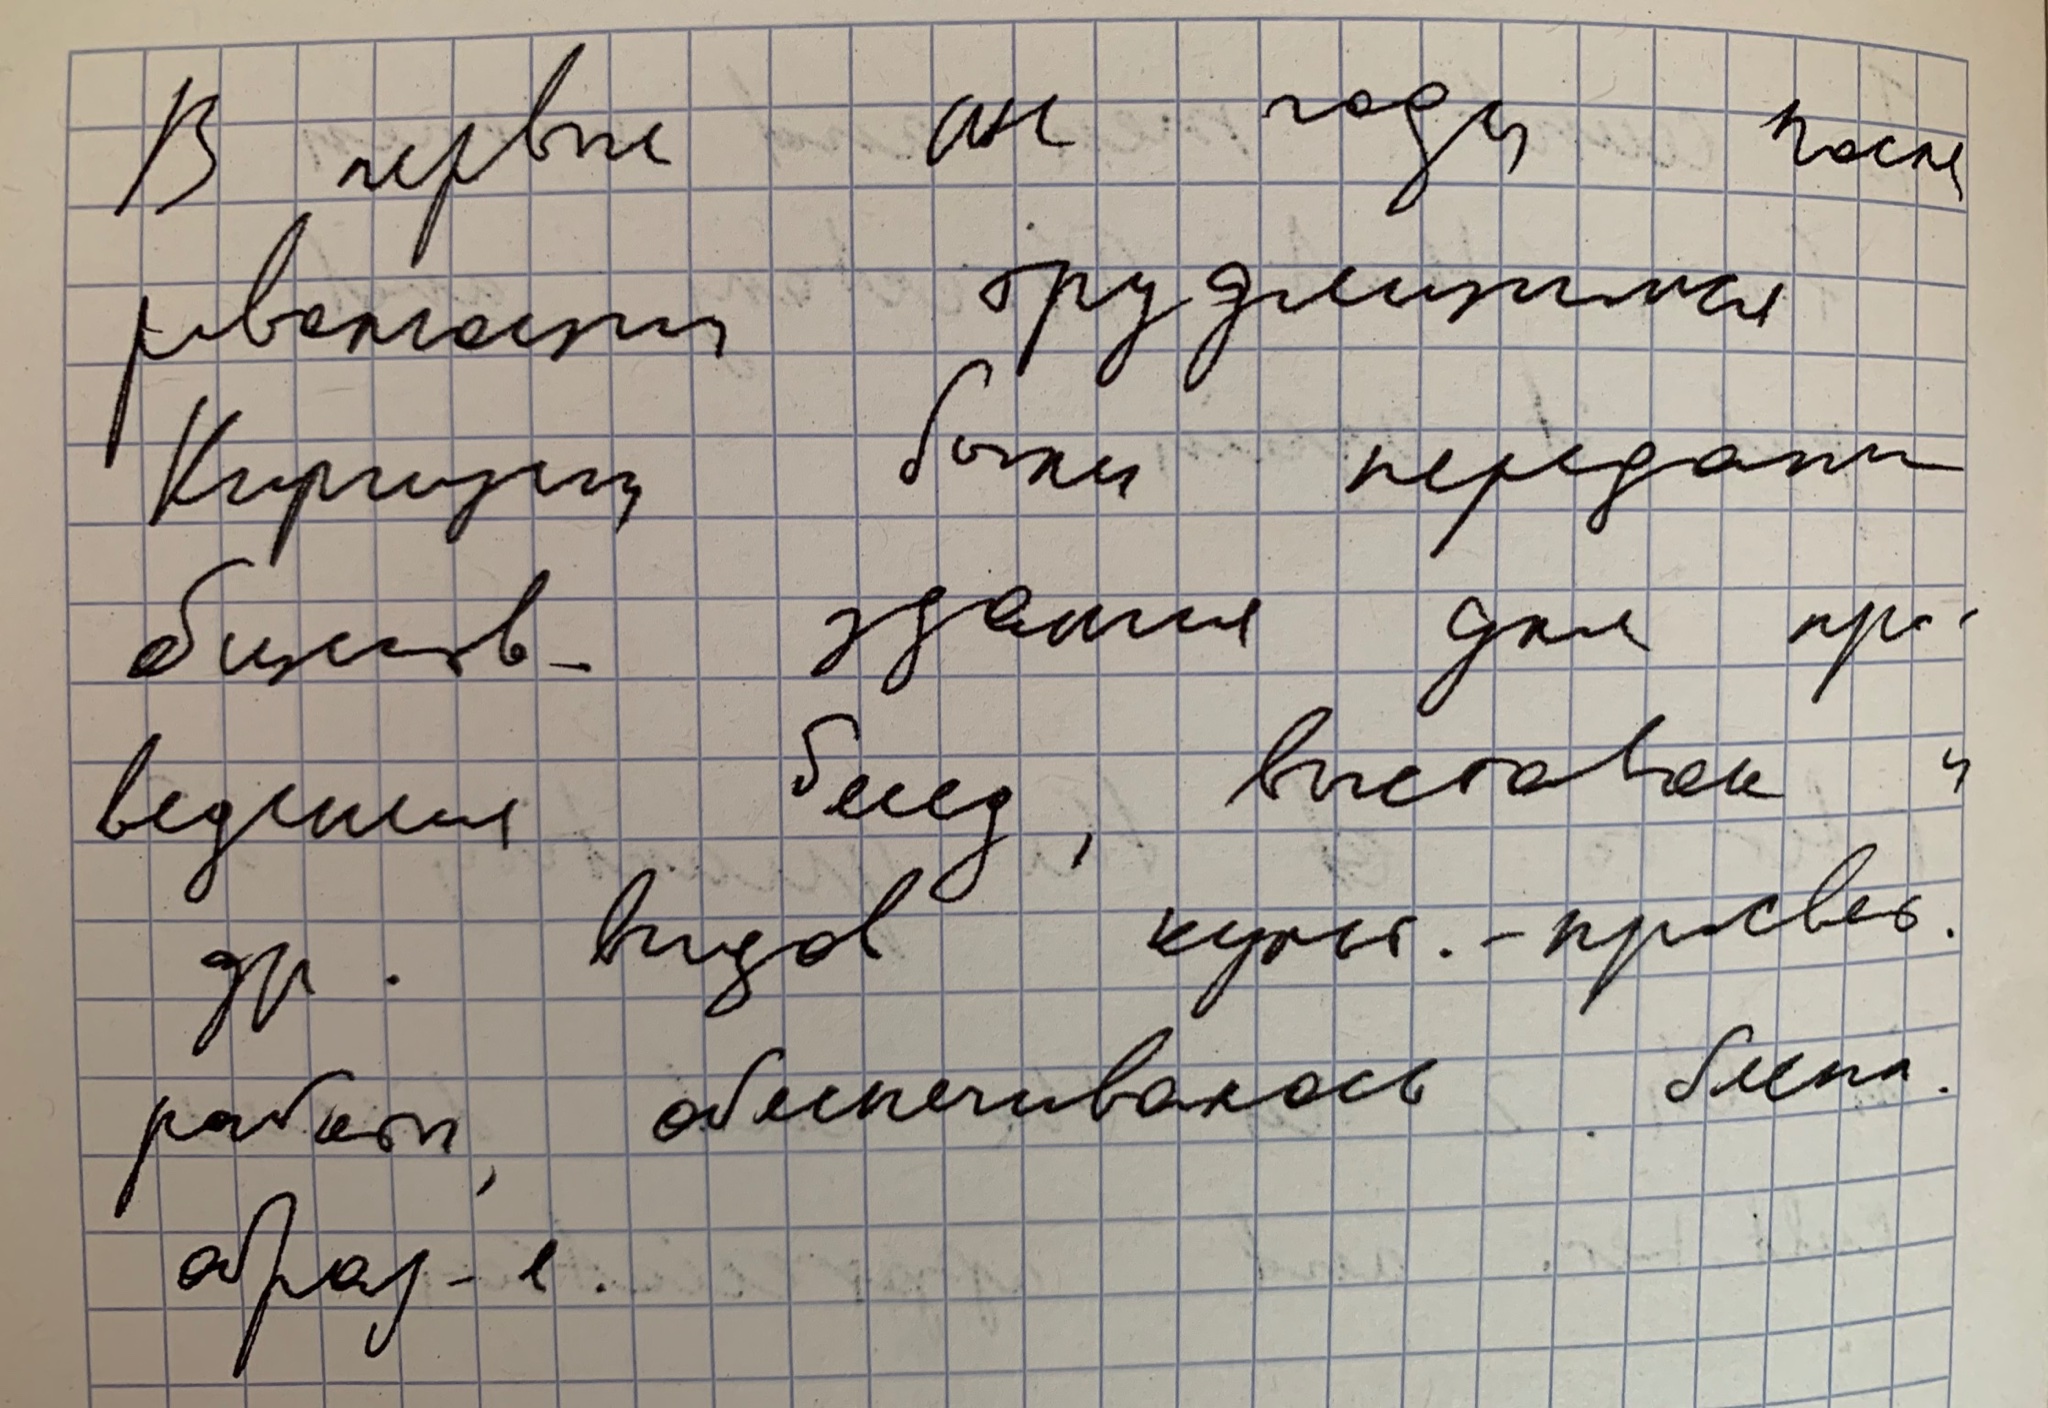 В первые же годы после
революции трудящимся
Киргизии были переданы
обществ- здания для про-
ведения бесед, выставок и
др. видов культ.-просвет.
работы, обеспечивалось беспл.
образ-е.